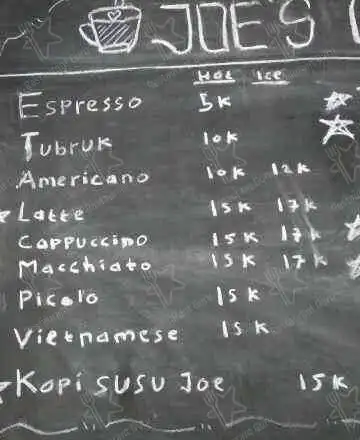 JOE'S
Hot Ice
Espresso 5K
Tubruk 10K
Americano 10K 12K
Latte 15K 17K
Cappuccino 15K 17K
Macchiato 15K 17K
Picolo 15K
Vietnamese 15K
Kopi SUSU Joe 15K